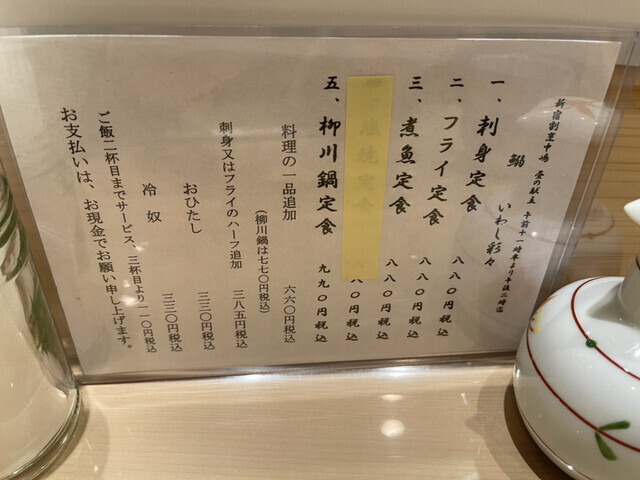 新宿割烹中嶋 昼の献立 午前十一時半より午後二時迄
鰯 いわし彩々
一、刺身定食 八八〇円税込
二、フライ定食 八八〇円税込
三、煮魚定食 八八〇円税込
塩焼定食 八〇円税込
五、柳川鍋定食 九九〇円税込
料理の一品追加 六六〇円税込
(柳川鍋は七七〇円税込)
刺身又はフライのハーフ追加 三八五円税込
おひたし 三三〇円税込
冷奴 三三〇円税込
ご飯二杯目までサービス、三杯目より一一〇円税込
お支払いは、お現金でお願い申し上げます。